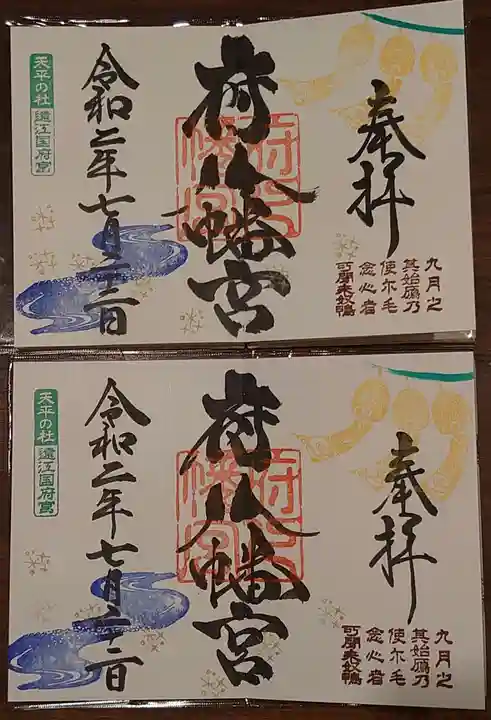 奉拝
九月之
其始鴈乃
使尓毛
念心者
可聞来奴鴨
府八幡宮
令和二年七月二十二日
天平の社
遠江国府宮
奉拝
九月之
其始鴈乃
使尓毛
念心者
可聞来奴鴨
府八幡宮
令和二年七月二十二日
天平の社
遠江国府宮